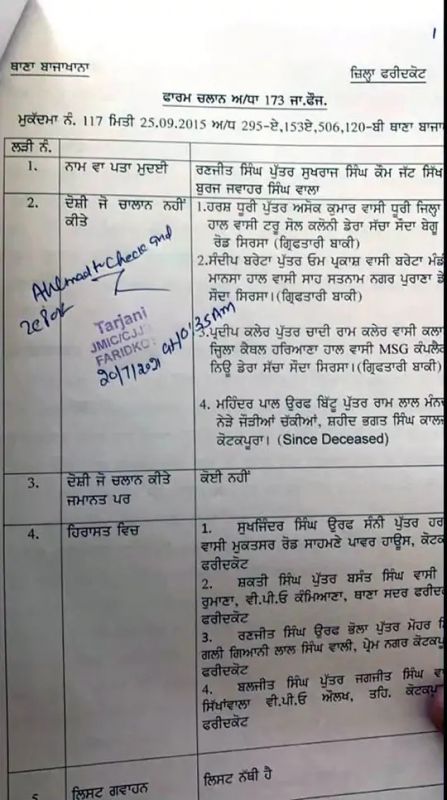 1
ਥਾਣਾ ਬਾਜਾਖਾਨਾ
ਜ਼ਿਲ੍ਹਾ ਫਰੀਦਕੋਟ
ਫਾਰਮ ਚਲਾਨ ਅ/ਧਾ 173 ਜਾ.ਫੌਜ.
ਮੁਕੱਦਮਾ ਨੰ. 117 ਮਿਤੀ 25.09.2015 ਅ/ਧ 295-ਏ,153ਏ,506,120-ਬੀ ਥਾਣਾ ਬਾਜਾ
ਲੜੀ ਨੰ.
1. ਨਾਮ ਵਾ ਪਤਾ ਮੁਦਈ
ਰਣਜੀਤ ਸਿੰਘ ਪੁੱਤਰ ਸੁਖਰਾਜ ਸਿੰਘ ਕੌਮ ਜੱਟ ਸਿੱਖ
ਬੁਰਜ ਜਵਾਹਰ ਸਿੰਘ ਵਾਲਾ
2. ਦੋਸ਼ੀ ਜੋ ਚਾਲਾਨ ਨਹੀਂ
ਕੀਤੇ
1.ਹਰਸ਼ ਧੂਰੀ ਪੁੱਤਰ ਅਸ਼ੋਕ ਕੁਮਾਰ ਵਾਸੀ ਧੂਰੀ ਜਿਲ੍ਹਾ
ਹਾਲ ਵਾਸੀ ਟਰੂ ਸੋਲ ਕਲੋਨੀ ਡੇਰਾ ਸੱਚਾ ਸੌਦਾ ਬੇਗੂ
ਰੋਡ ਸਿਰਸਾ (ਗ੍ਰਿਫਤਾਰੀ ਬਾਕੀ)
2.ਸੰਦੀਪ ਬਰੇਟਾ ਪੁੱਤਰ ਓਮ ਪ੍ਰਕਾਸ਼ ਵਾਸੀ ਬਰੇਟਾ ਮੰਡੀ
ਮਾਨਸਾ ਹਾਲ ਵਾਸੀ ਸਾਹ ਸਤਨਾਮ ਨਗਰ ਪੁਰਾਣਾ ਡੇ
ਸੌਦਾ ਸਿਰਸਾ।(ਗ੍ਰਿਫਤਾਰੀ ਬਾਕੀ)
3.ਪ੍ਰਦੀਪ ਕਲੇਰ ਪੁੱਤਰ ਚਾਦੀ ਰਾਮ ਕਲੇਰ ਵਾਸੀ ਕਲਾ
ਜ੍ਹਿਲਾ ਕੈਥਲ ਹਰਿਆਣਾ ਹਾਲ ਵਾਸੀ MSG ਕੰਪਲੈ
ਨਿਊ ਡੇਰਾ ਸੱਚਾ ਸੌਦਾ ਸਿਰਸਾ।(ਗ੍ਰਿਫਤਾਰੀ ਬਾਕੀ)
4. ਮਹਿੰਦਰ ਪਾਲ ਉਰਫ ਬਿੱਟੂ ਪੁੱਤਰ ਰਾਮ ਲਾਲ ਮੰਨ
ਨੇੜੇ ਜੌੜੀਆਂ ਚੱਕੀਆਂ, ਸ਼ਹੀਦ ਭਗਤ ਸਿੰਘ ਕਾਲ
ਕੋਟਕਪੂਰਾ। (Since Deceased)
Ahlmad to Check and
Tarjani
JMIC/CJJ
FARIDKO
20/7/2021 at 10:35 Am
3. ਦੋਸ਼ੀ ਜੋ ਚਲਾਨ ਕੀਤੇ
ਜਮਾਨਤ ਪਰ
ਕੋਈ ਨਹੀਂ
4. ਹਿਰਾਸਤ ਵਿਚ
1. ਸੁਖਜਿੰਦਰ ਸਿੰਘ ਉਰਫ ਸੰਨੀ ਪੁੱਤਰ ਹਰ
ਵਾਸੀ ਮੁਕਤਸਰ ਰੋਡ ਸਾਹਮਣੇ ਪਾਵਰ ਹਾਊਸ, ਕੋਟਕ
ਫਰੀਦਕੋਟ
2. ਸ਼ਕਤੀ ਸਿੰਘ ਪੁੱਤਰ ਬਸੰਤ ਸਿੰਘ ਵਾਸੀ
ਰੁਮਾਣਾ, ਵੀ.ਪੀ.ਓ ਕੰਮਿਆਣਾ, ਥਾਣਾ ਸਦਰ ਫਰੀਦ
ਫਰੀਦਕੋਟ
3. ਰਣਜੀਤ ਸਿੰਘ ਉਰਫ ਭੋਲਾ ਪੁੱਤਰ ਮੋਹਰ ਸਿ
ਗਲੀ ਗਿਆਨੀ ਲਾਲ ਸਿੰਘ ਵਾਲੀ, ਪ੍ਰੇਮ ਨਗਰ ਕੋਟਕਪੂ
ਫਰੀਦਕੋਟ
4. ਬਲਜੀਤ ਸਿੰਘ ਪੁੱਤਰ ਜਗਜੀਤ ਸਿੰਘ ਵਾ
ਸਿੱਖਾਂਵਾਲਾ ਵੀ.ਪੀ.ਓ ਔਲਖ, ਤਹਿ. ਕੋਟਕਪੂ
ਫਰੀਦਕੋਟ
5 ਲਿਸਟ ਗਵਾਹਨ
ਲਿਸਟ ਨੱਥੀ ਹੈ